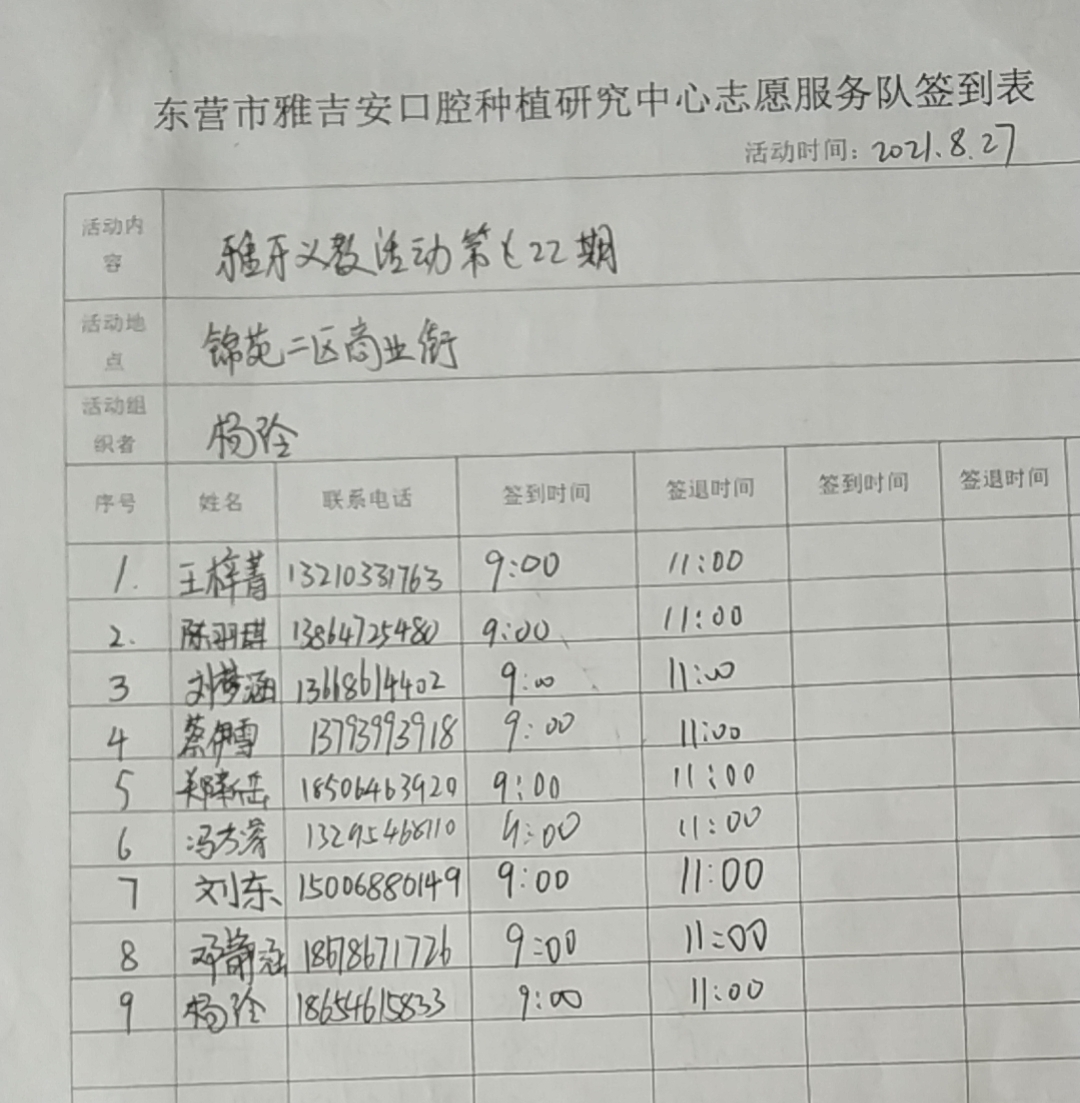 东营市雅吉安口腔种植研究中心志愿服务队签到表
活动时间：2021.8.27
活动内容 雅牙义教活动第七22期
活动地点 锦苑二区商业街
活动组织者 杨玲
序号 姓名 联系电话 签到时间 签退时间 签到时间 签退时间
1. 王梓菁 13210331763 9:00 11:00
2. 陈羽琪 13864725480 9:00 11:00
3 刘梦涵 13618614402 9:00 11:00
4 蔡伊雪 13793993918 9:00 11:00
5 郑新岳 18506463920 9:00 11:00
6 13295468110 9:00 11:00
7 刘东 15006886149 9:00 11:00
8 邓静涵 18678671726 9:00 11:00
9 杨玲 18654615833 9:00 11:00